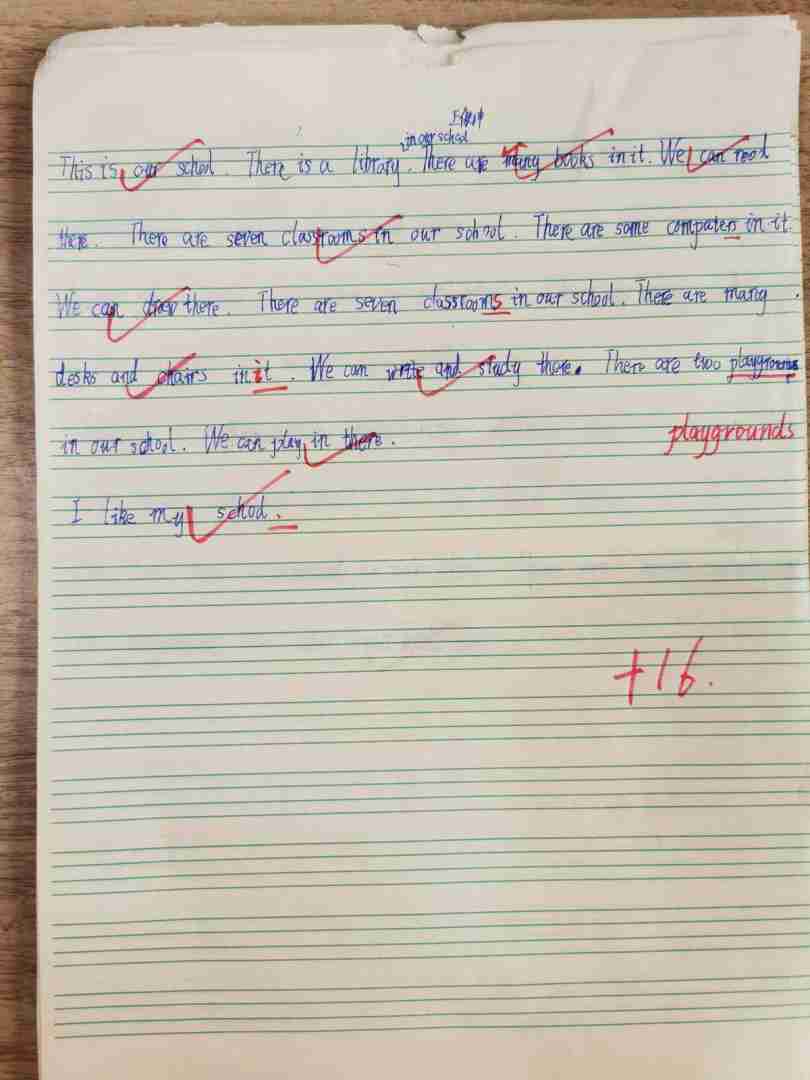 in our school
This is our school. There is a library. There are many books in it. We can read
there. There are seven classrooms in our school. There are some computers in it.
We can draw there. There are seven classrooms in our school. There are many
desks and chairs in it. We can write and study there. There are two playgrounds
in our school. We can play in there.
playgrounds
I like my school.
+16.